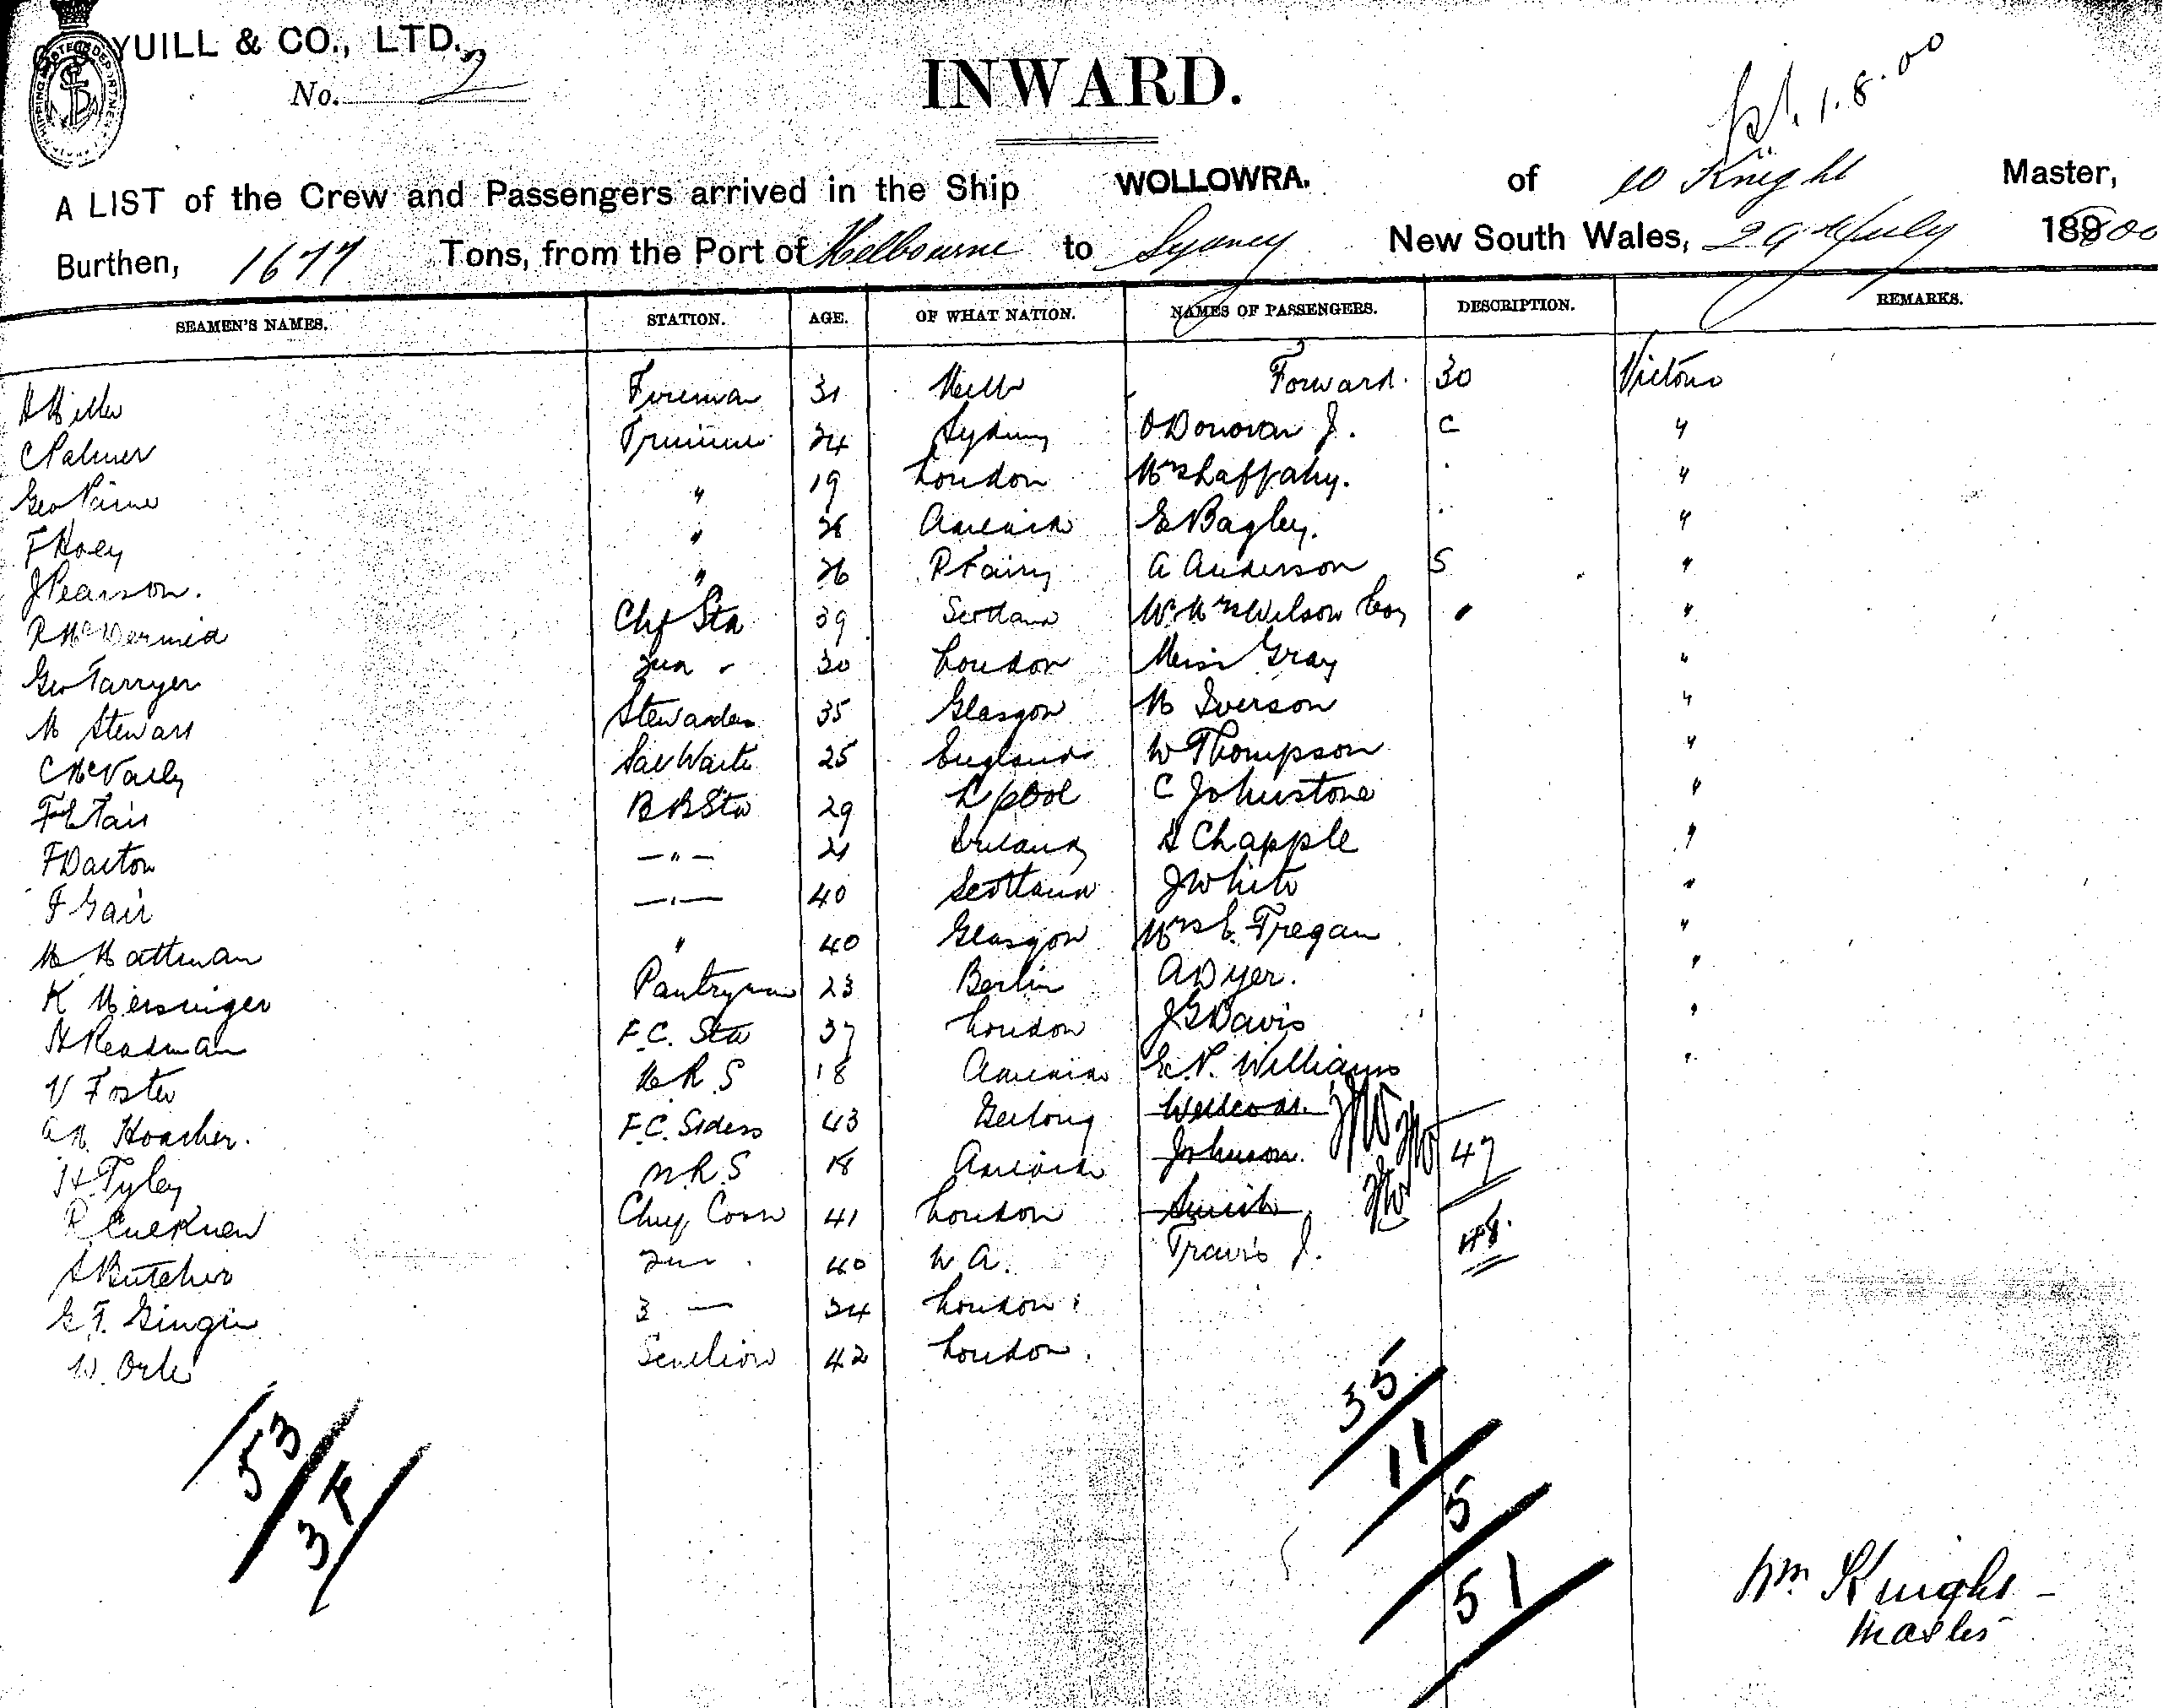 G. S. YUILL & CO., LTD.
No. 2
INWARD.
1.8.00
A LIST of the Crew and Passengers arrived in the Ship WOLLOWRA. of W Knight Master,
Burthen, 1677 Tons, from the Port of Melbourne to Sydney New South Wales, 29th July 1900
SEAMEN'S NAMES. STATION. AGE. OF WHAT NATION. NAMES OF PASSENGERS. DESCRIPTION. REMARKS.
A Miller Fireman 31 Melb Forward. 30 Victoria
C Palmer Trimmer 24 Sydney O Donovan J. C "
Geo " 19 London Mrs Laffahy. "
F Hoey " 26 America E Bagley. "
J Pearson. " 26 P Fairy A Anderson S "
R McDermid Chf Std 39 Scotland Mr Mrs Wilson "
Geo Tarryer 2nd " 30 London Miss Gray "
M Stewart Stewardess 35 Glasgow M Iverson "
C McVarly Sal Waiter 25 England W Thompson "
F E Tait B R Std 29 L'pool C Johnstone "
F Darton — " — 21 Ireland A Chapple "
F Gair — " — 40 Scotland J White "
M Mattman " 40 Glasgow Mrs E. Tregan "
K Messinger Pantryman 23 Berlin A Dyer. "
H Readman F.C. Std 37 London J G Davis "
V Foster M.R.S 18 America E. N. Williams "
A M. Hoacher. F.C. Sides 43 Geelong
H. Tyley M.R.S 18 America Johnson. 47
R. Cucknew Chief Cook 41 London Smith
A Butcher 2nd 40 W A. Travis J. 48.
G. F. Gingin 3 — 24 London
W. Orle Scullion 42 London.
53
37
35
11
5
51
Wm Knight
Master